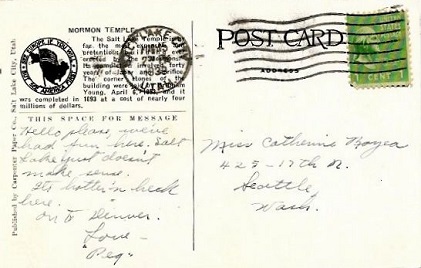 MORMON TEMPLE
The Salt Lake Temple is by
far the most
pretentious
It
years of
The corner stones of the
building were laid by Brigham
Young, April 6, 1853, and it
was completed in 1893 at a cost of nearly four
millions of dollars.
THIS SPACE FOR MESSAGE
Hello please, we've
had fun here. Salt
Lake just doesn't
make sense.
Its hotter'n heck
here.
On to Denver.
Love -
Peg
Published by Carpenter Paper Co., Salt Lake City, Utah
SEE EUROPE IF YOU WILL BUT SEE AMERICA FIRST
SALT LAKE CITY
UTAH
POST CARD
ADDRESS
1 CENT 1
Miss Catherine
425 - 17th N.
Seattle,
Wash.